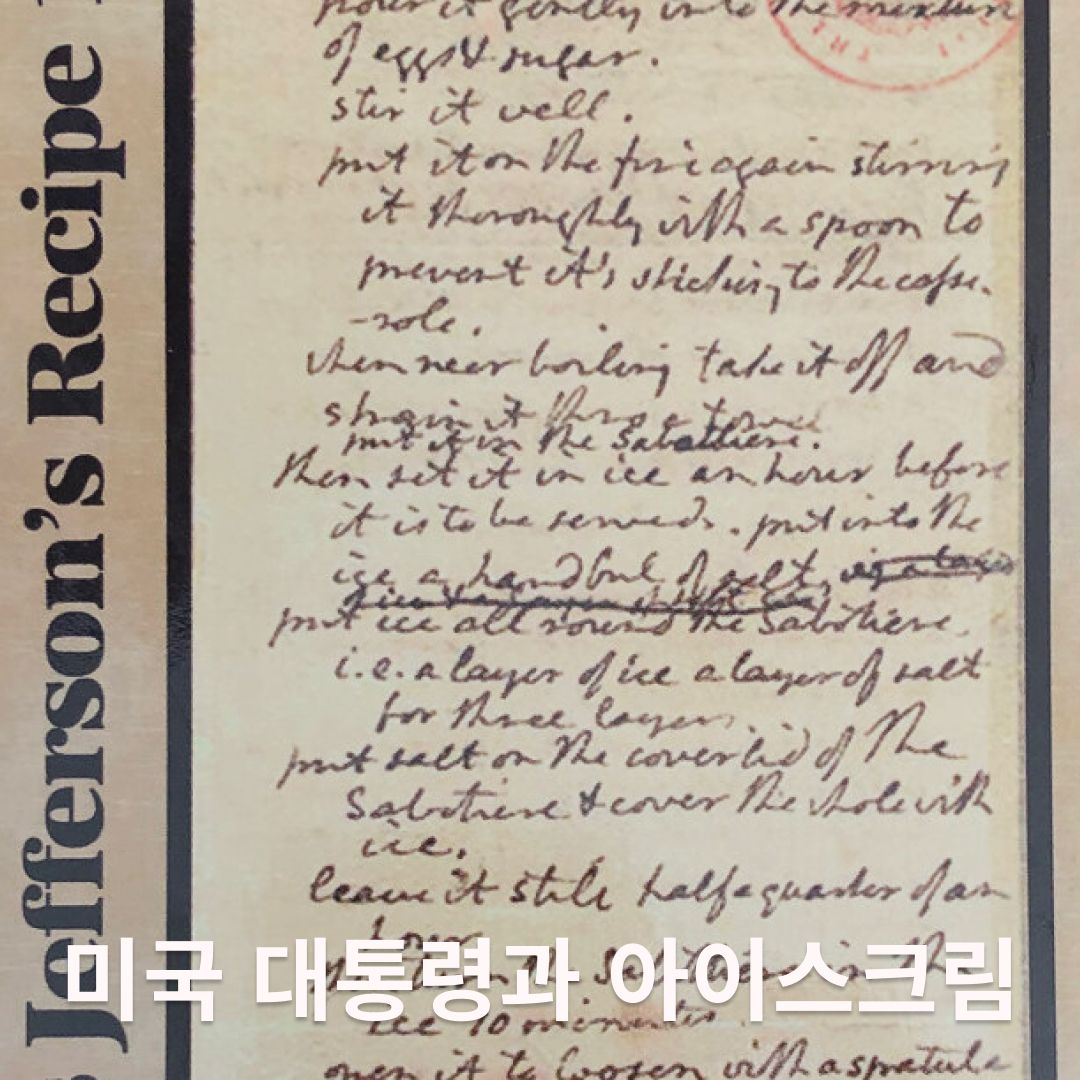 Jefferson's Recipe
pour it gently into the mixture
of eggs & sugar.
stir it well.
put it on the fire again stirring
it thoroughly with a spoon to
prevent it's sticking to the casse-
-role.
when near boiling take it off and
strain it thro' a towel
put it in the Sabottiere.
then set it in ice an hour before
it is to be served. put into the
ice a handful of salt,
put ice all round the Sabotiere
i.e. a layer of ice a layer of salt
for three layers.
put salt on the coverlid of the
Sabotiere & cover the whole with
ice.
leave it still half a quarter of an
hour
미국 대통령과 아이스크림
ice 10 minutes
open it to loosen with a spatula